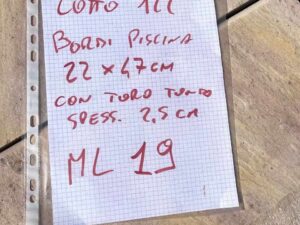 COTTO
BORDI PISCINA
22 x 47 CM
CON TORO TONDO
SPESS. 2,5 CM
ML 19